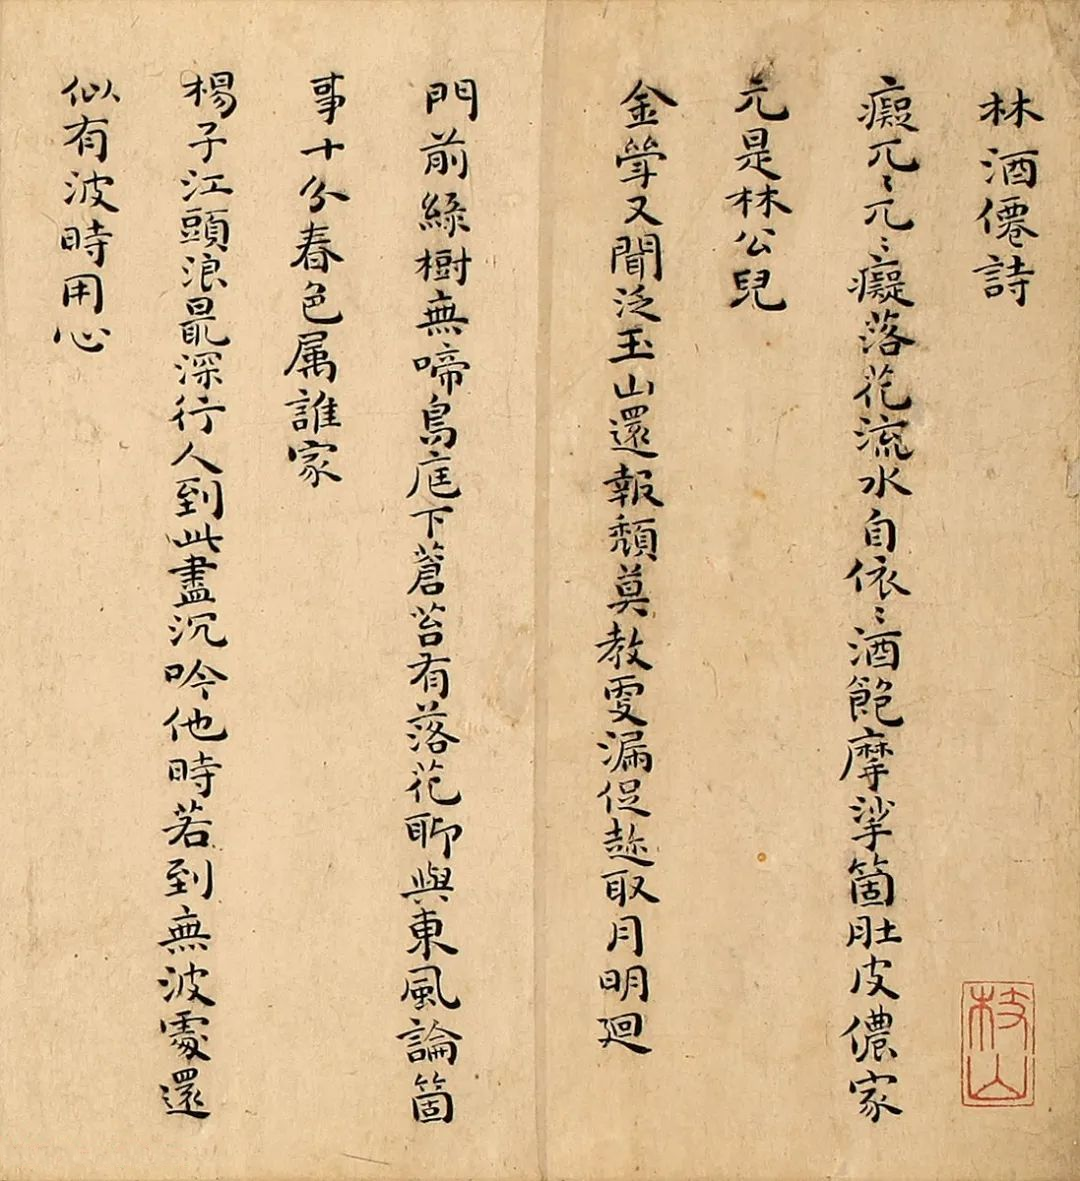 林酒僊詩
癡兀〻兀〻癡落花流水自依〻酒飽摩挲箇肚皮儂家
元是林公兒
金斝又聞泛玉山還報頹莫教更漏促趂取月明廻
門前綠樹無啼鳥庭下蒼苔有落花聊與東風論箇
事十分春色属誰家
楊子江頭浪㝡深行人到此盡沉吟他時若到無波處還
似有波時用心
枝山